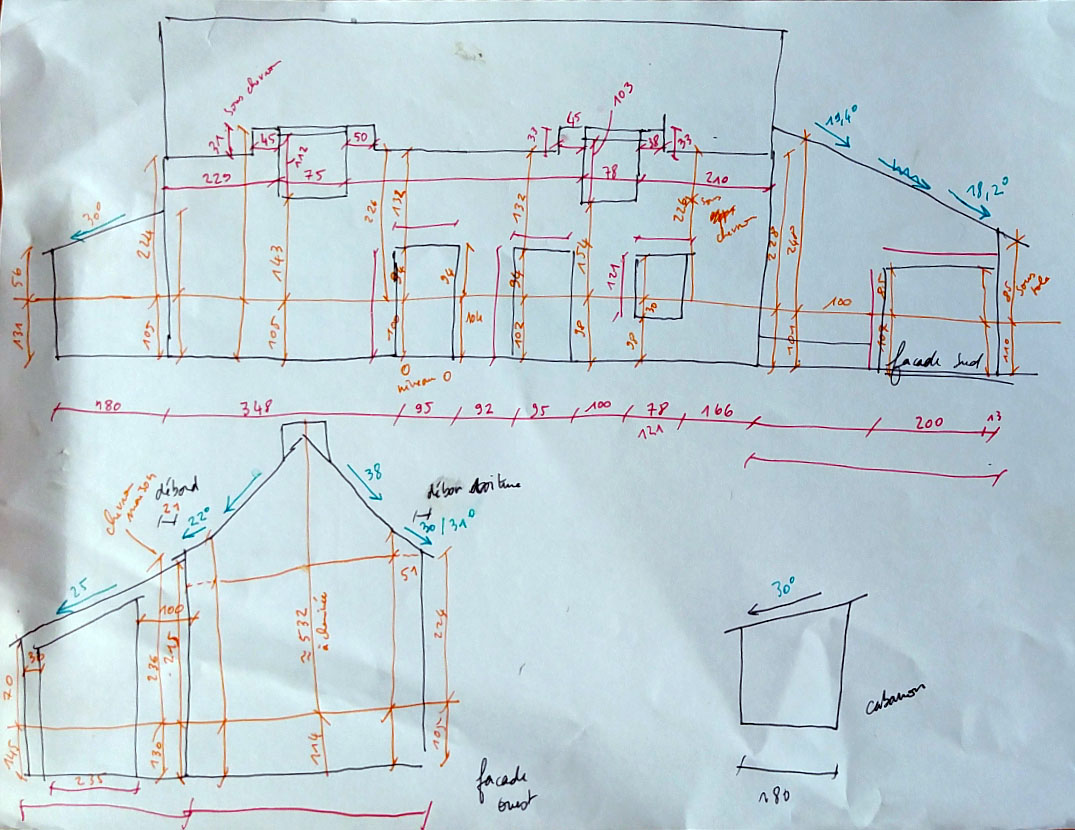 sous chevron
31
45
50
112
75
229
33
45
103
33
38
78
210
19,4°
18,2°
300
224
56
131
105
143
105
226
132
94
100
94
104
132
94
102
154
98
121
30
98
226
sous
chevron
228
248
101
100
85
102
85
110
sous
façade sud
0
niveau 0
180
348
95
92
95
100
78
121
166
200
13
chevron
maison
débord
21
22°
25
38
débord toiture
30/31°
51
100
236
215
130
70
145
235
≈ 532
à cheminée
114
224
105
façade
ouest
30°
cabanon
180